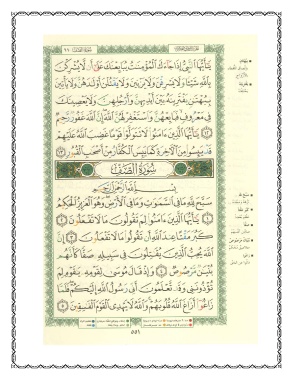 يَٰٓأَيُّهَا ٱلنَّبِيُّ إِذَا جَآءَكَ ٱلْمُؤْمِنَٰتُ يُبَايِعْنَكَ عَلَىٰٓ أَن لَّا يُشْرِكْنَ
بِٱللَّهِ شَيْـًٔا وَلَا يَسْرِقْنَ وَلَا يَزْنِينَ وَلَا يَقْتُلْنَ أَوْلَٰدَهُنَّ وَلَا يَأْتِينَ
بِبُهْتَٰنٍ يَفْتَرِينَهُۥ بَيْنَ أَيْدِيهِنَّ وَأَرْجُلِهِنَّ وَلَا يَعْصِينَكَ
فِى مَعْرُوفٍ فَبَايِعْهُنَّ وَٱسْتَغْفِرْ لَهُنَّ ٱللَّهَ إِنَّ ٱللَّهَ غَفُورٌ رَّحِيمٌ
﴿١٢﴾ يَٰٓأَيُّهَا ٱلَّذِينَ ءَامَنُوا۟ لَا تَتَوَلَّوْا۟ قَوْمًا غَضِبَ ٱللَّهُ عَلَيْهِمْ
قَدْ يَئِسُوا۟ مِنَ ٱلْءَاخِرَةِ كَمَا يَئِسَ ٱلْكُفَّارُ مِنْ أَصْحَٰبِ ٱلْقُبُورِ ﴿١٣﴾
سُورَةُ الصَّفِّ
بِسْمِ ٱللَّهِ ٱلرَّحْمَٰنِ ٱلرَّحِيمِ
سَبَّحَ لِلَّهِ مَا فِى ٱلسَّمَٰوَٰتِ وَمَا فِى ٱلْأَرْضِ وَهُوَ ٱلْعَزِيزُ ٱلْحَكِيمُ
﴿١﴾ يَٰٓأَيُّهَا ٱلَّذِينَ ءَامَنُوا۟ لِمَ تَقُولُونَ مَا لَا تَفْعَلُونَ ﴿٢﴾
كَبُرَ مَقْتًا عِندَ ٱللَّهِ أَن تَقُولُوا۟ مَا لَا تَفْعَلُونَ ﴿٣﴾ إِنَّ
ٱللَّهَ يُحِبُّ ٱلَّذِينَ يُقَٰتِلُونَ فِى سَبِيلِهِۦ صَفًّا كَأَنَّهُم
بُنْيَٰنٌ مَّرْصُوصٌ ﴿٤﴾ وَإِذْ قَالَ مُوسَىٰ لِقَوْمِهِۦ يَٰقَوْمِ لِمَ
تُؤْذُونَنِى وَقَد تَّعْلَمُونَ أَنِّى رَسُولُ ٱللَّهِ إِلَيْكُمْ فَلَمَّا
زَاغُوٓا۟ أَزَاغَ ٱللَّهُ قُلُوبَهُمْ وَٱللَّهُ لَا يَهْدِى ٱلْقَوْمَ ٱلْفَٰسِقِينَ ﴿٥﴾
٥٥١